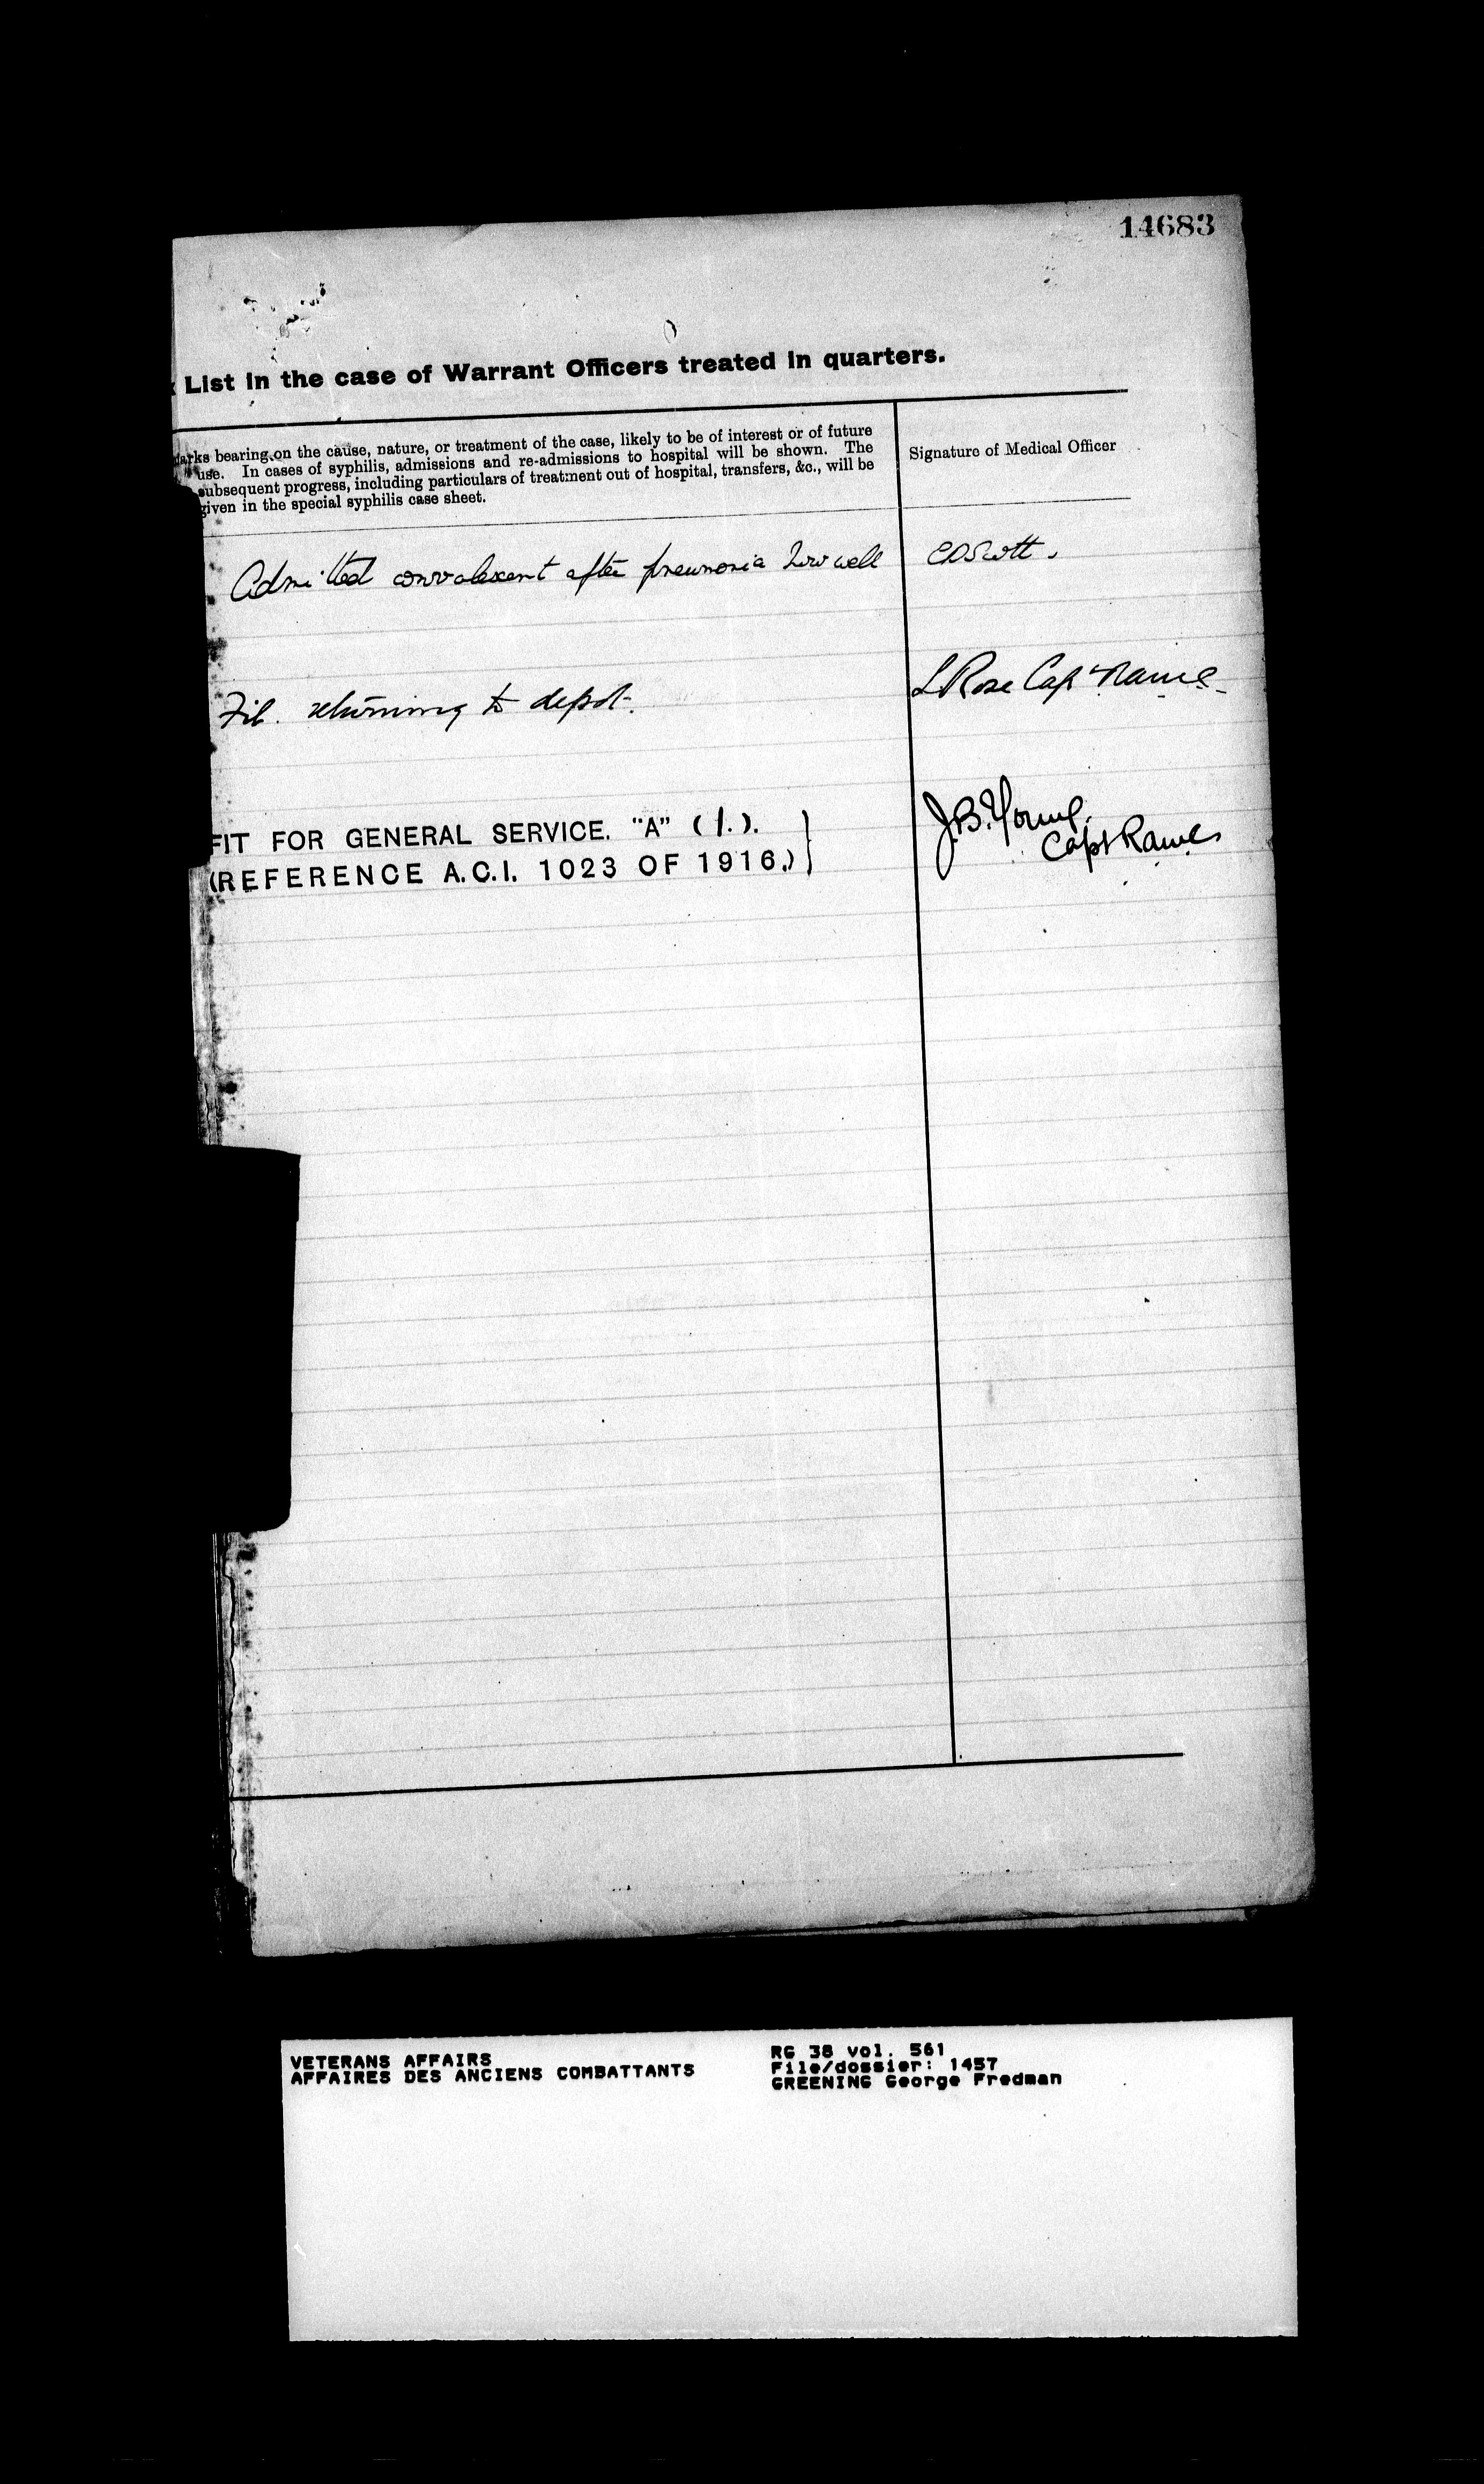 14683
List in the case of Warrant Officers treated in quarters.
arks bearing on the cause, nature, or treatment of the case, likely to be of interest or of future
use. In cases of syphilis, admissions and re-admissions to hospital will be shown. The
subsequent progress, including particulars of treatment out of hospital, transfers, &c., will be
given in the special syphilis case sheet.
Signature of Medical Officer
Admitted convalescent after pneumonia Now well
EDScott.
Fit. returning to depot.
L Rose Capt RAMC
FIT FOR GENERAL SERVICE. "A" (1.).
(REFERENCE A.C.I. 1023 OF 1916.)
J.B. Young.
Capt RAMC
VETERANS AFFAIRS
AFFAIRES DES ANCIENS COMBATTANTS
RG 38 vol. 561
File/dossier: 1457
GREENING George Fredman